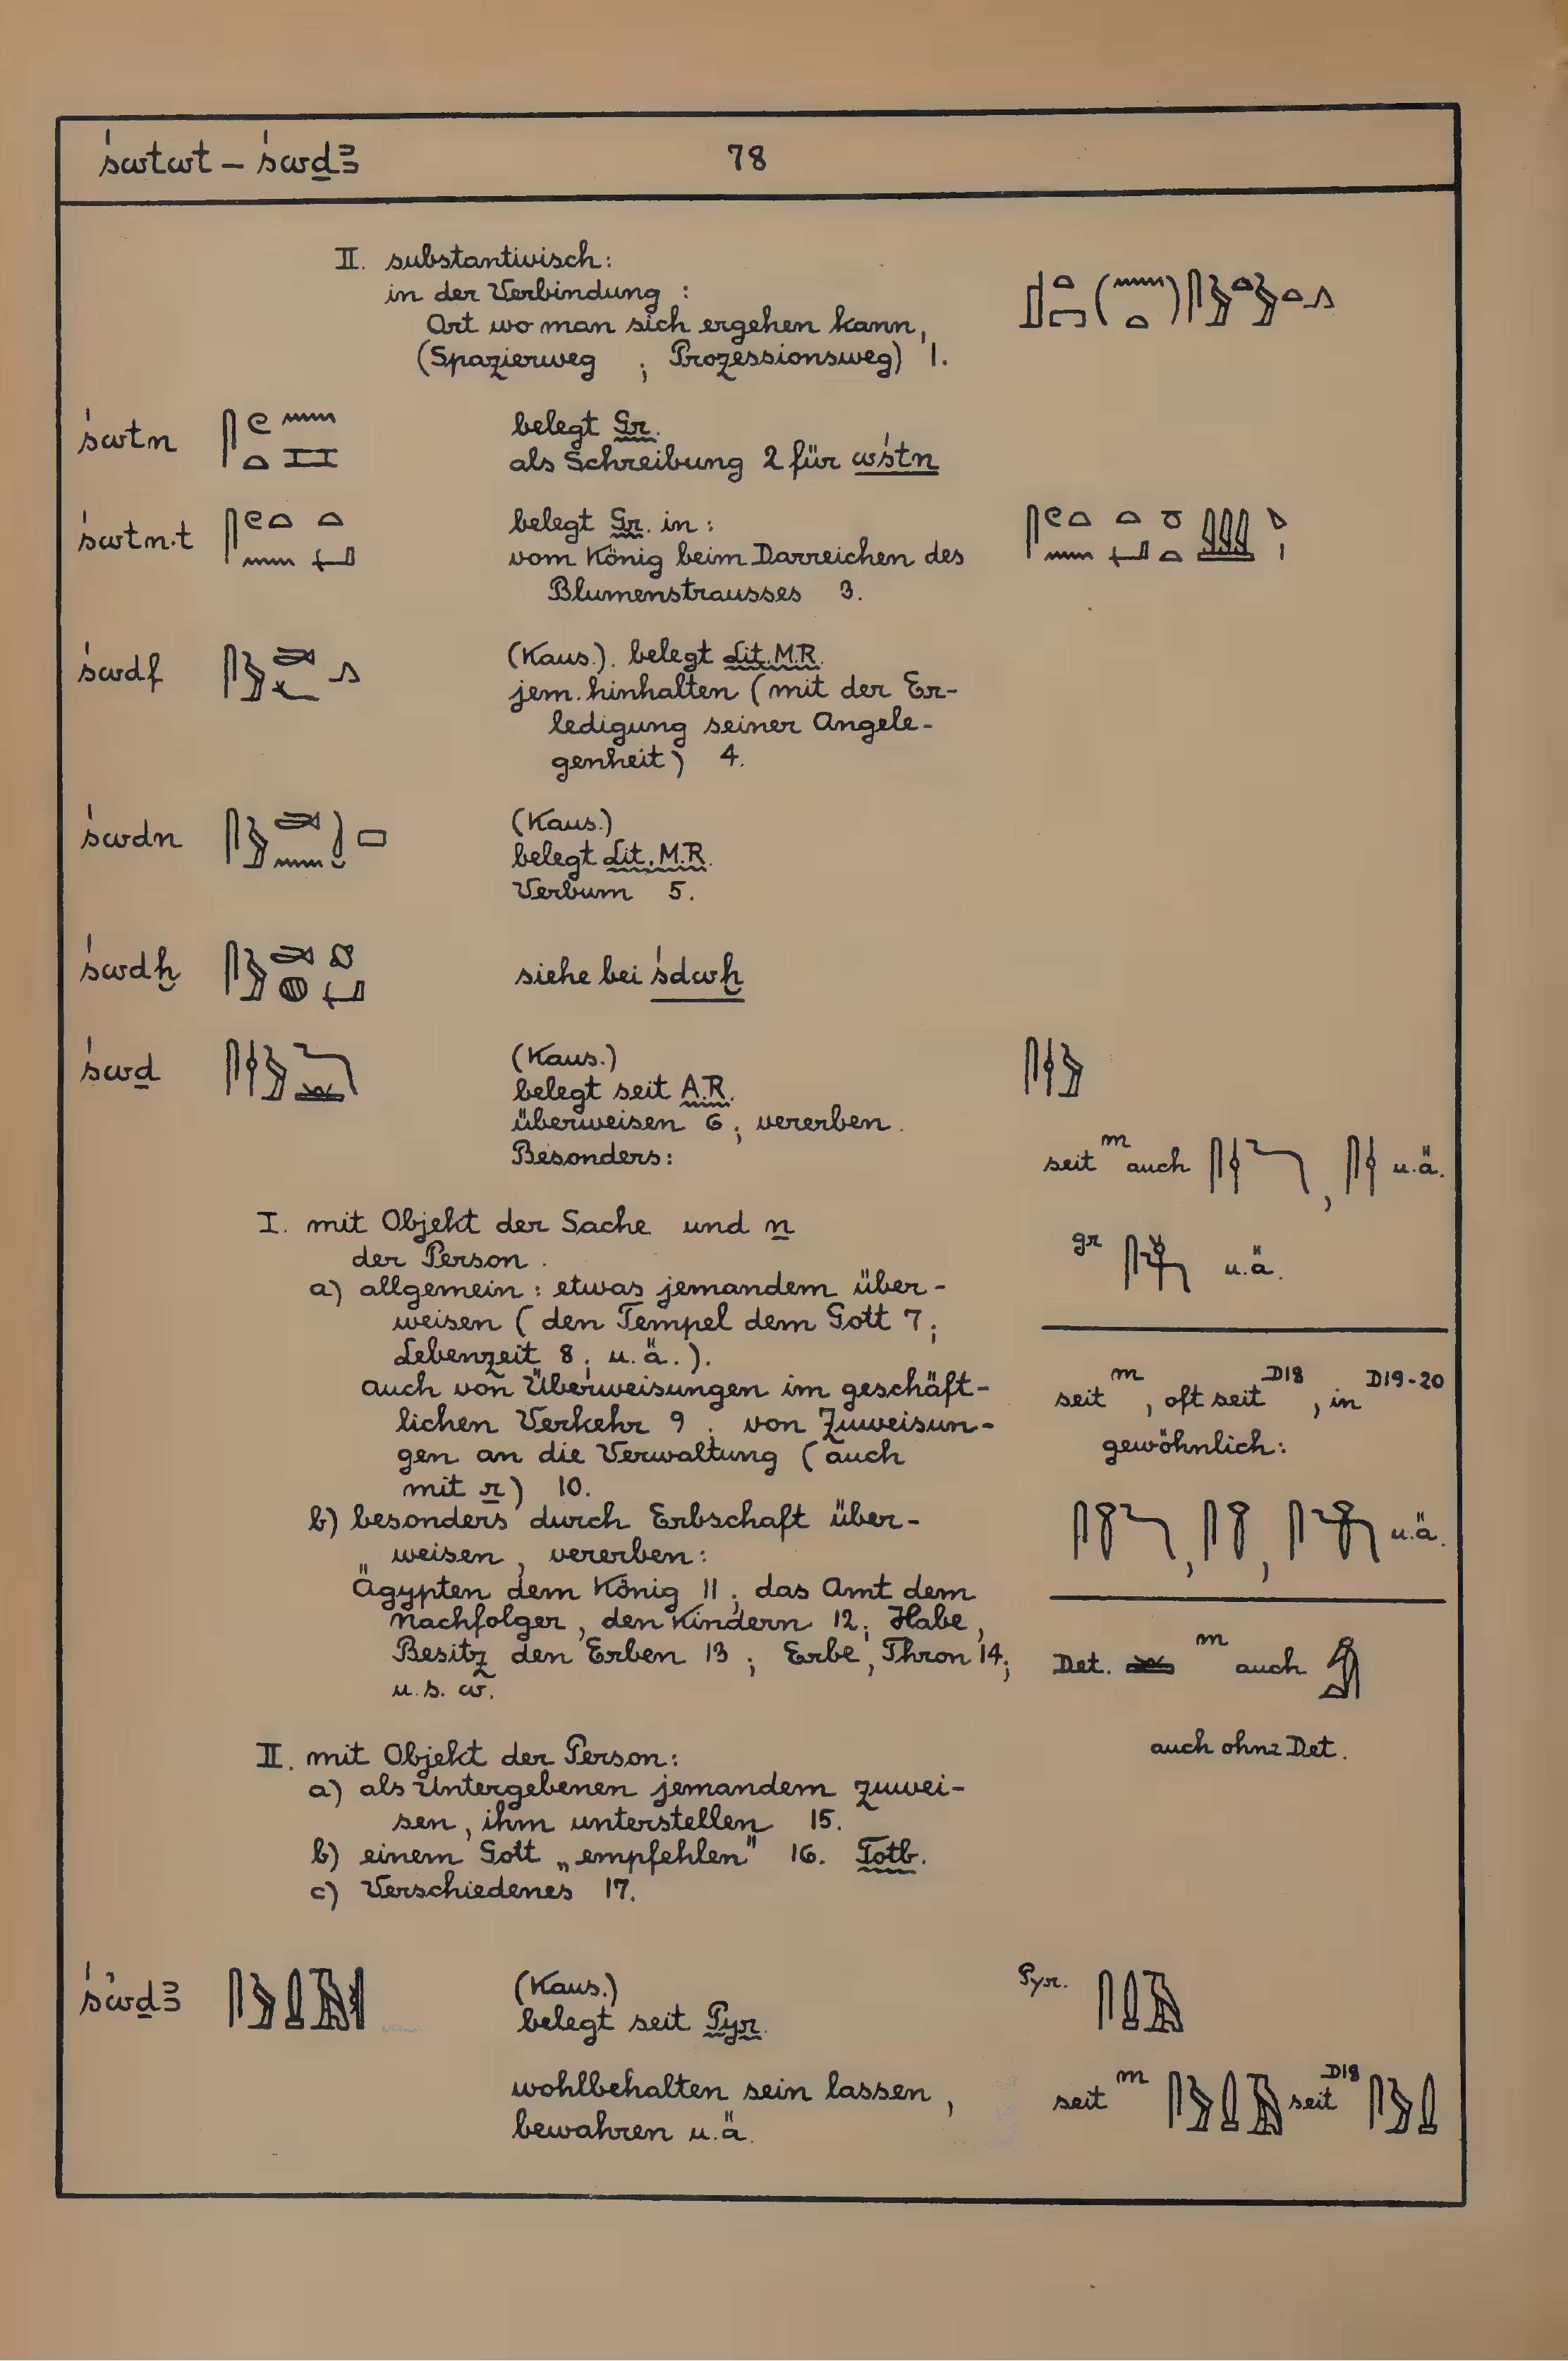 śwtwt – śwḏꜣ 78
II. substantivisch:
in der Verbindung :
Ort wo man sich ergehen kann,
(Spazierweg ; Prozessionsweg) 1.
śwtn belegt Gr.
als Schreibung 2 für wśtn
śwtn·t belegt Gr. in :
vom König beim Darreichen des
Blumenstrausses 3.
śwdf (Kaus.). belegt Lit. M.R.
jem. hinhalten (mit der Er-
ledigung seiner Angele-
genheit) 4.
śwdn (Kaus.)
belegt Lit. M.R.
Verbum 5.
śwdḫ siehe bei śdwḫ
śwḏ (Kaus.)
belegt seit A.R.
überweisen 6; vererben.
Besonders:
I. mit Objekt der Sache und n
der Person.
a) allgemein: etwas jemandem über-
weisen (den Tempel dem Gott 7;
Lebenzeit 8; u. ä.).
auch von Überweisungen im geschäft-
lichen Verkehr 9; von Zuweisun-
gen an die Verwaltung (auch
mit r) 10.
b) besonders durch Erbschaft über-
weisen, vererben:
Ägypten dem König 11; das Amt dem
Nachfolger, den Kindern 12; Habe,
Besitz den Erben 13; Erbe, Thron 14;
u. s. w.
II. mit Objekt der Person:
a) als Untergebenen jemandem zuwei-
sen, ihm unterstellen 15.
b) einem Gott „empfehlen" 16. Totb.
c) Verschiedenes 17.
seit m auch , u. ä.
gr u. ä.
seit m, oft seit D18, in D19-20
gewöhnlich:
, , u. ä.
Det. m auch
auch ohne Det.
śwḏꜣ (Kaus.)
belegt seit Pyr.
wohlbehalten sein lassen,
bewahren u. ä.
Pyr.
seit m seit D18